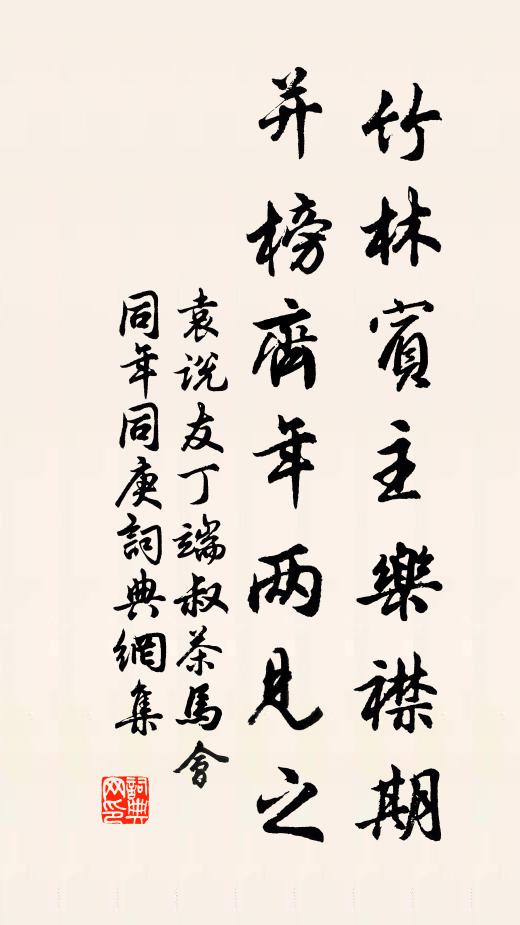 竹林賓主樂襟期
并榜齊年两見之
袁说友丁端叔茶馬會
同年同庚詞典網集
詞典网印